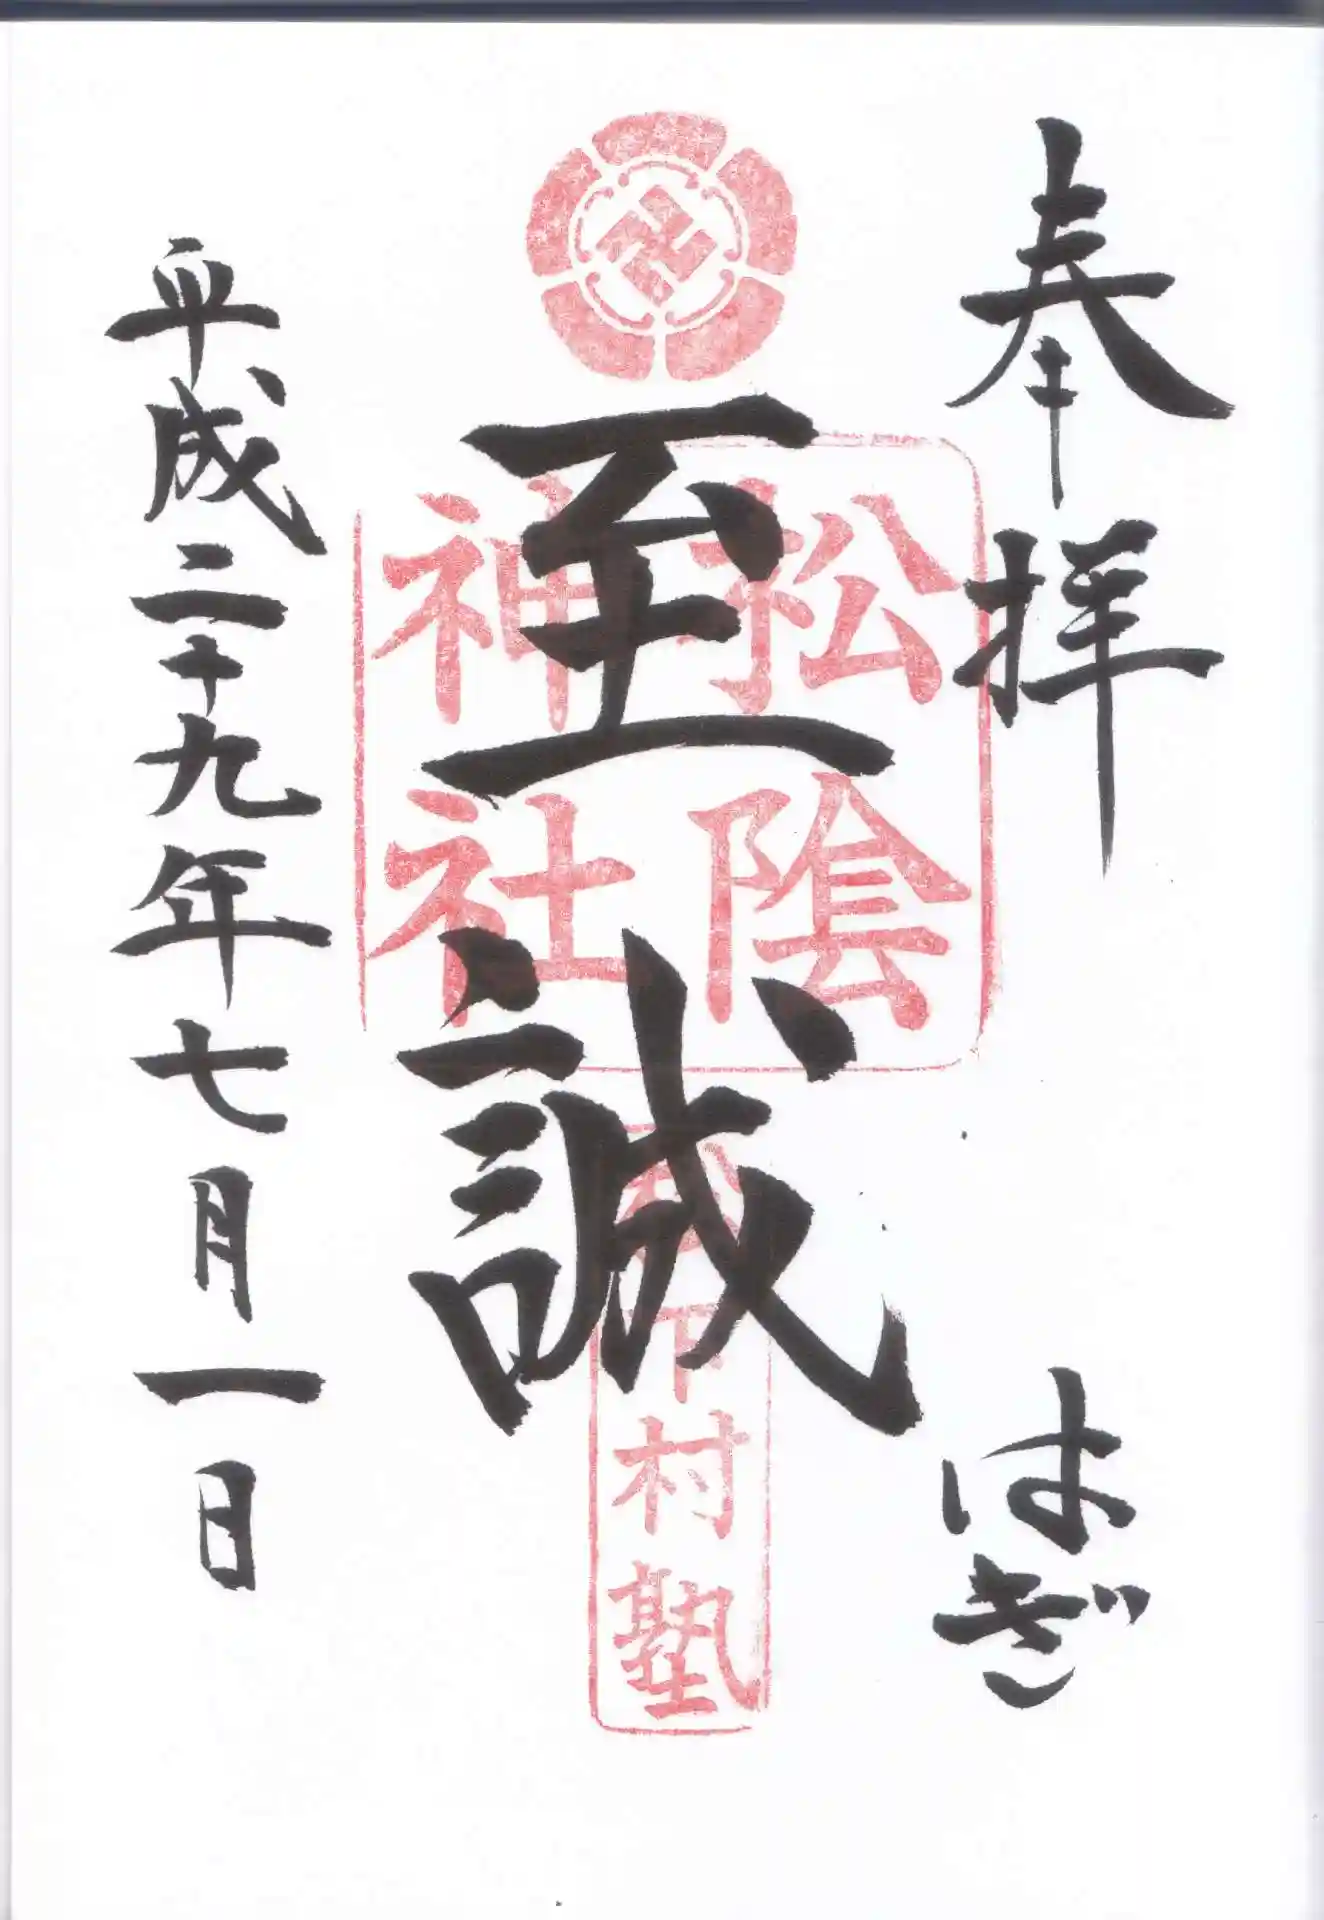 奉拝
はぎ
至誠
松陰
神社
松下村塾
平成二十九年七月一日